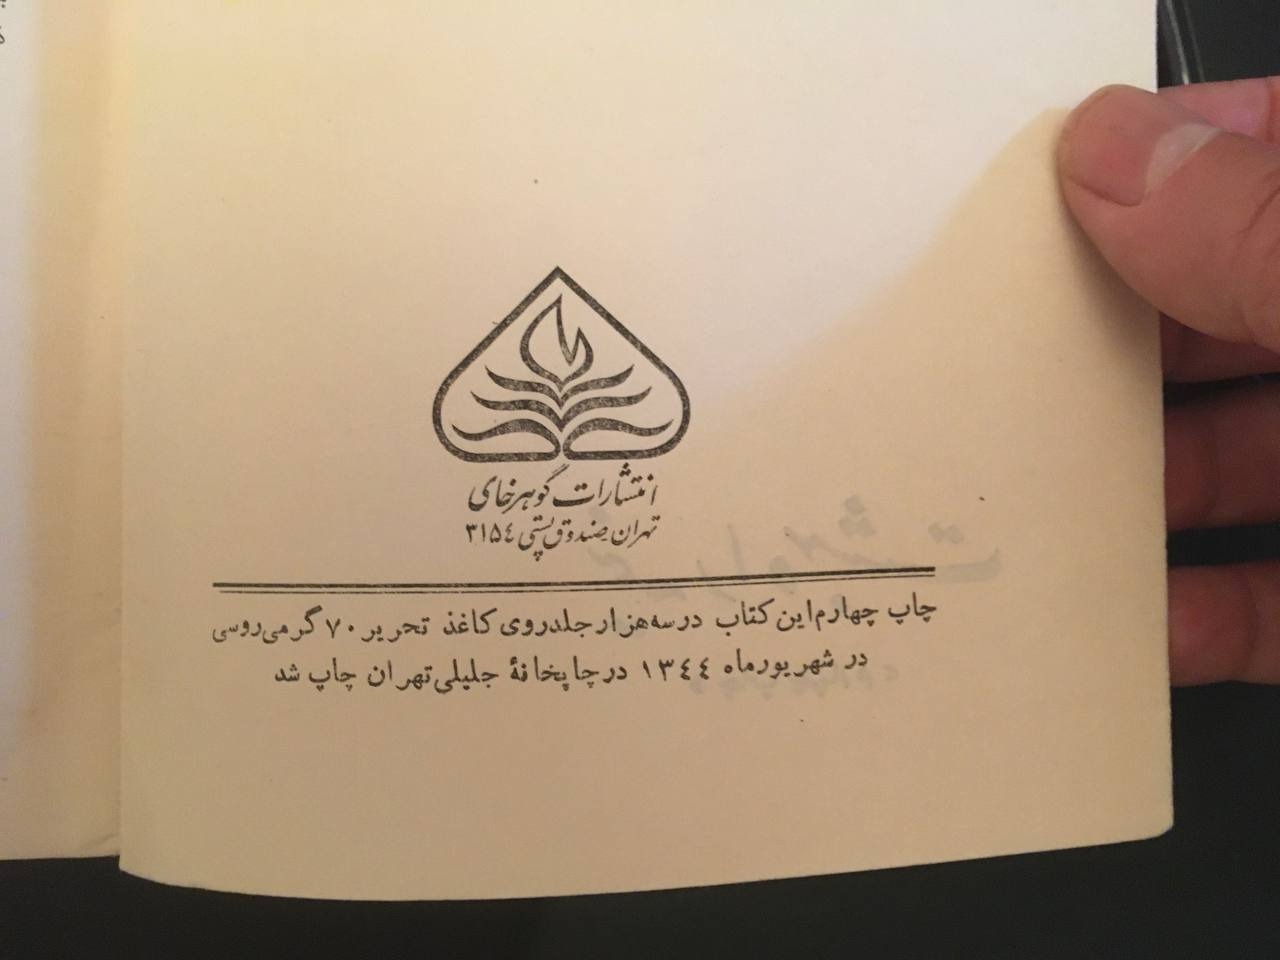 انتشارات گوهرخای
تهران صندوق پستی ۳۱۵٤
چاپ چهارم این کتاب در سه هزار جلد روی کاغذ تحریر ۷۰ گرمی روسی
در شهریور ماه ۱۳٤٤ در چاپخانهٔ جلیلی تهران چاپ شد